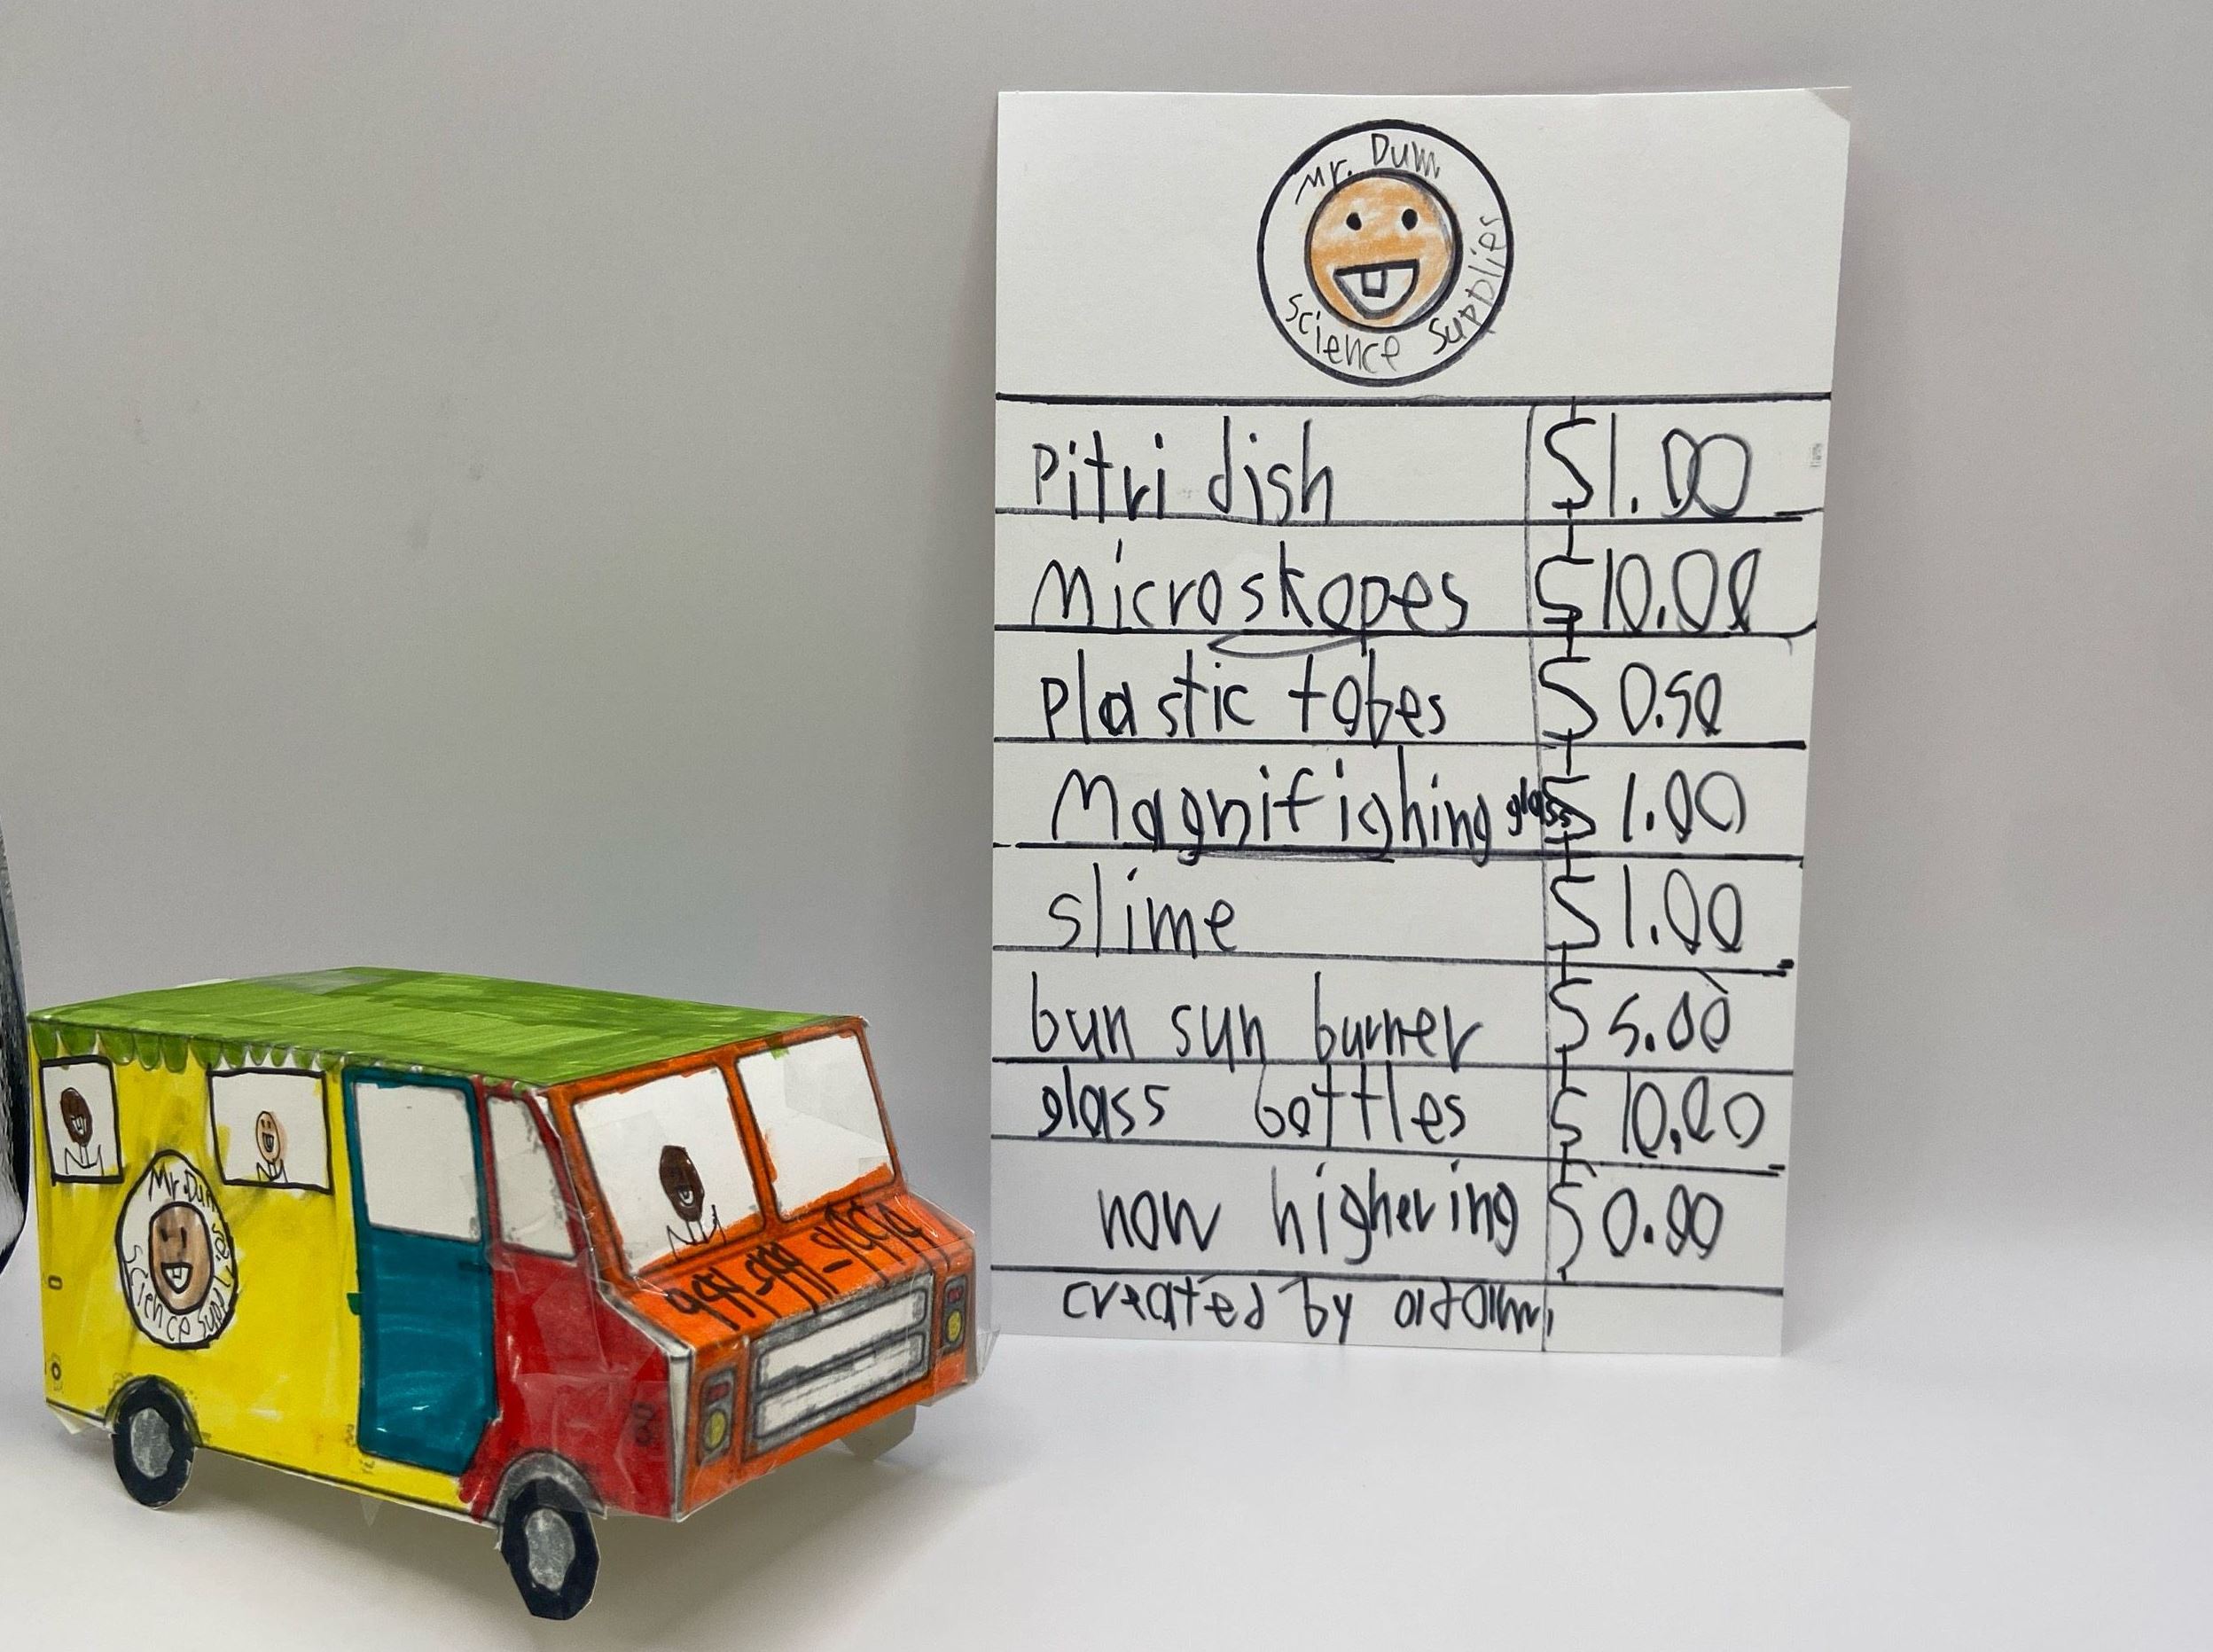 Mr. Dum
Science Supplies
Pitri dish $1.00
Microskopes $10.00
Plastic tobes $0.50
Magnifighing glass $1.00
slime $1.00
bun sun burner $5.00
glass bottles $10.00
now highering $0.00
created by adam
Mr. Dum
Science